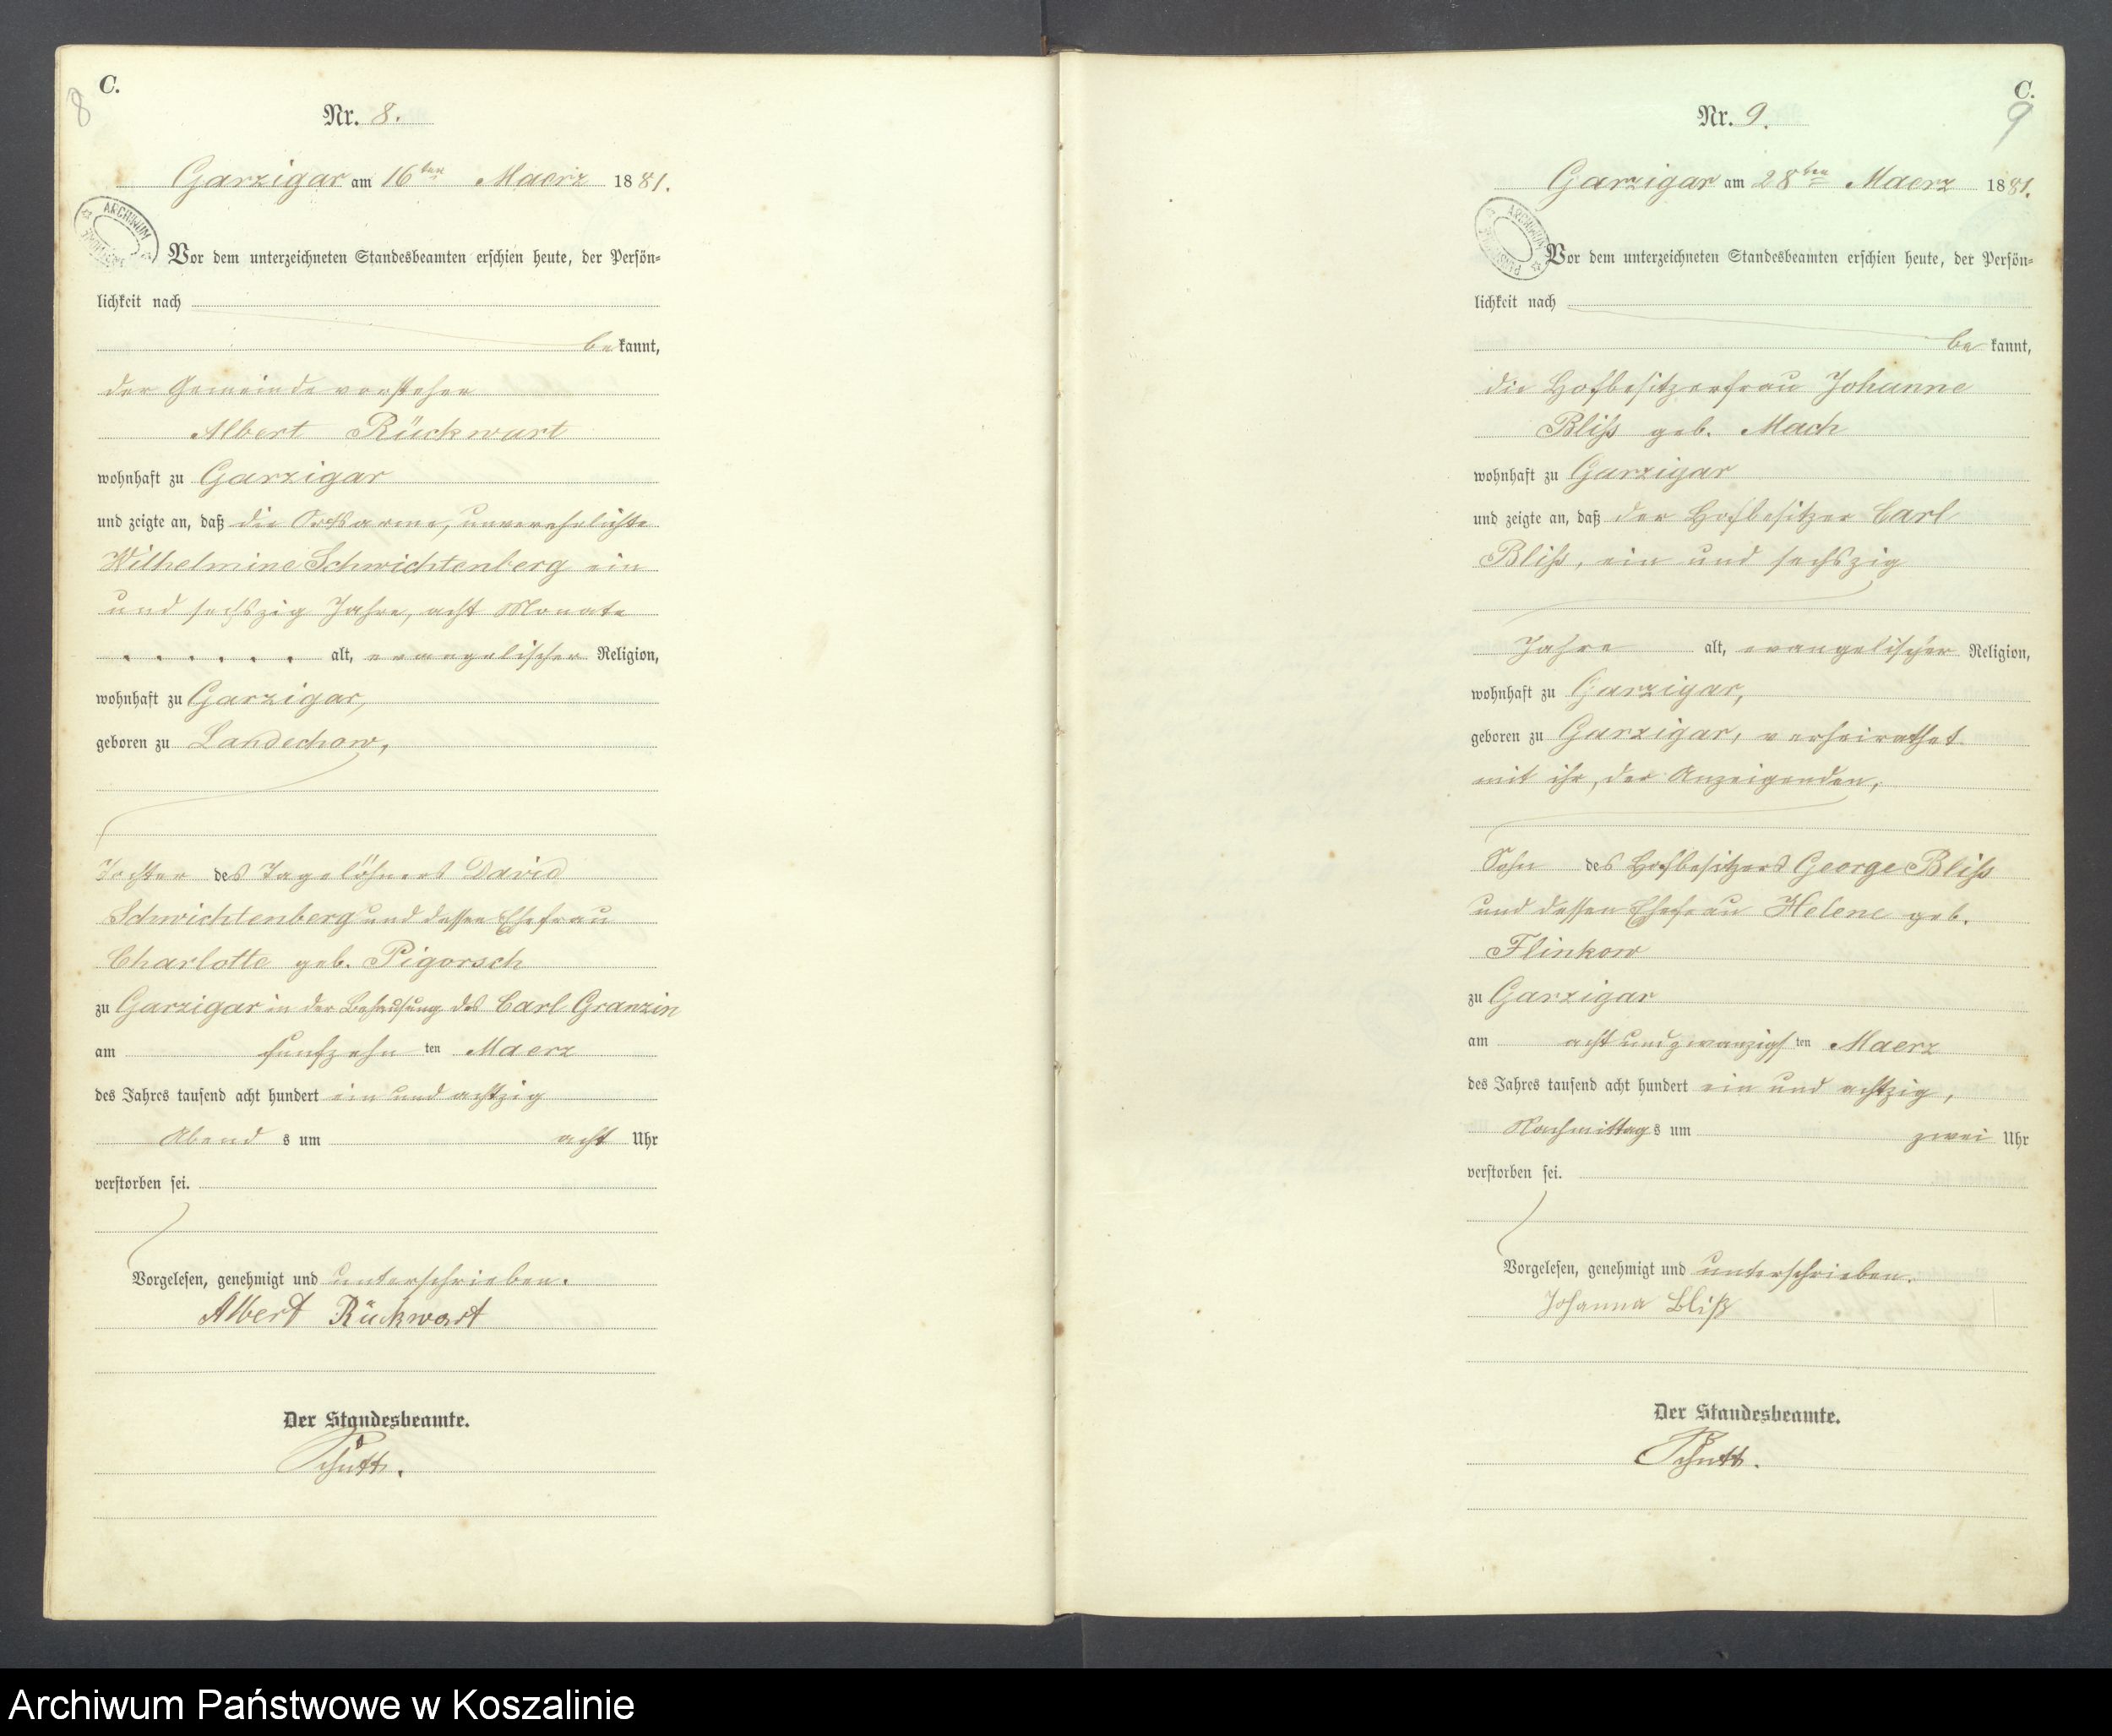 C.
8
Nr. 8.
Garzigar am 16ten Maerz 1881.
ARCHIWUM
Vor dem unterzeichneten Standesbeamten erschien heute, der Persön-
lichkeit nach
be kannt,
der Gemeindevorsteher
Albert Rückwart
wohnhaft zu Garzigar
und zeigte an, daß die Ortsarme, unverehelichte
Wilhelmine Schwichtenberg ein
und sechszig Jahre, acht Monate
alt, evangelischer Religion,
wohnhaft zu Garzigar,
geboren zu Landechow,
Tochter des Tagelöhners David
Schwichtenberg und dessen Ehefrau
Charlotte geb. Pigorsch
zu Garzigar in der Behausung des Carl Granzin
am funfzehn ten Maerz
des Jahres tausend acht hundert ein und achtzig
Abend s um acht Uhr
verstorben sei.
Vorgelesen, genehmigt und unterschrieben.
Albert Rückwart
Der Standesbeamte.
Schutt.
C.
9
Nr. 9.
Garzigar am 28ten Maerz 1881.
ARCHIWUM
Vor dem unterzeichneten Standesbeamten erschien heute, der Persön-
lichkeit nach
be kannt,
die Hofbesitzerfrau Johanne
Bliß geb. Mach
wohnhaft zu Garzigar
und zeigte an, daß der Hofbesitzer Carl
Bliß, ein und sechszig
Jahre alt, evangelischer Religion,
wohnhaft zu Garzigar,
geboren zu Garzigar, verheirathet
mit ihr, der Anzeigenden,
Sohn des Hofbesitzers George Bliß
und dessen Ehefrau Helene geb.
Flinkow
zu Garzigar
am acht und zwanzigs ten Maerz
des Jahres tausend acht hundert ein und achtzig,
Nachmittag s um zwei Uhr
verstorben sei.
Vorgelesen, genehmigt und unterschrieben.
Johanna Bliß
Der Standesbeamte.
Schutt.
Archiwum Państwowe w Koszalinie